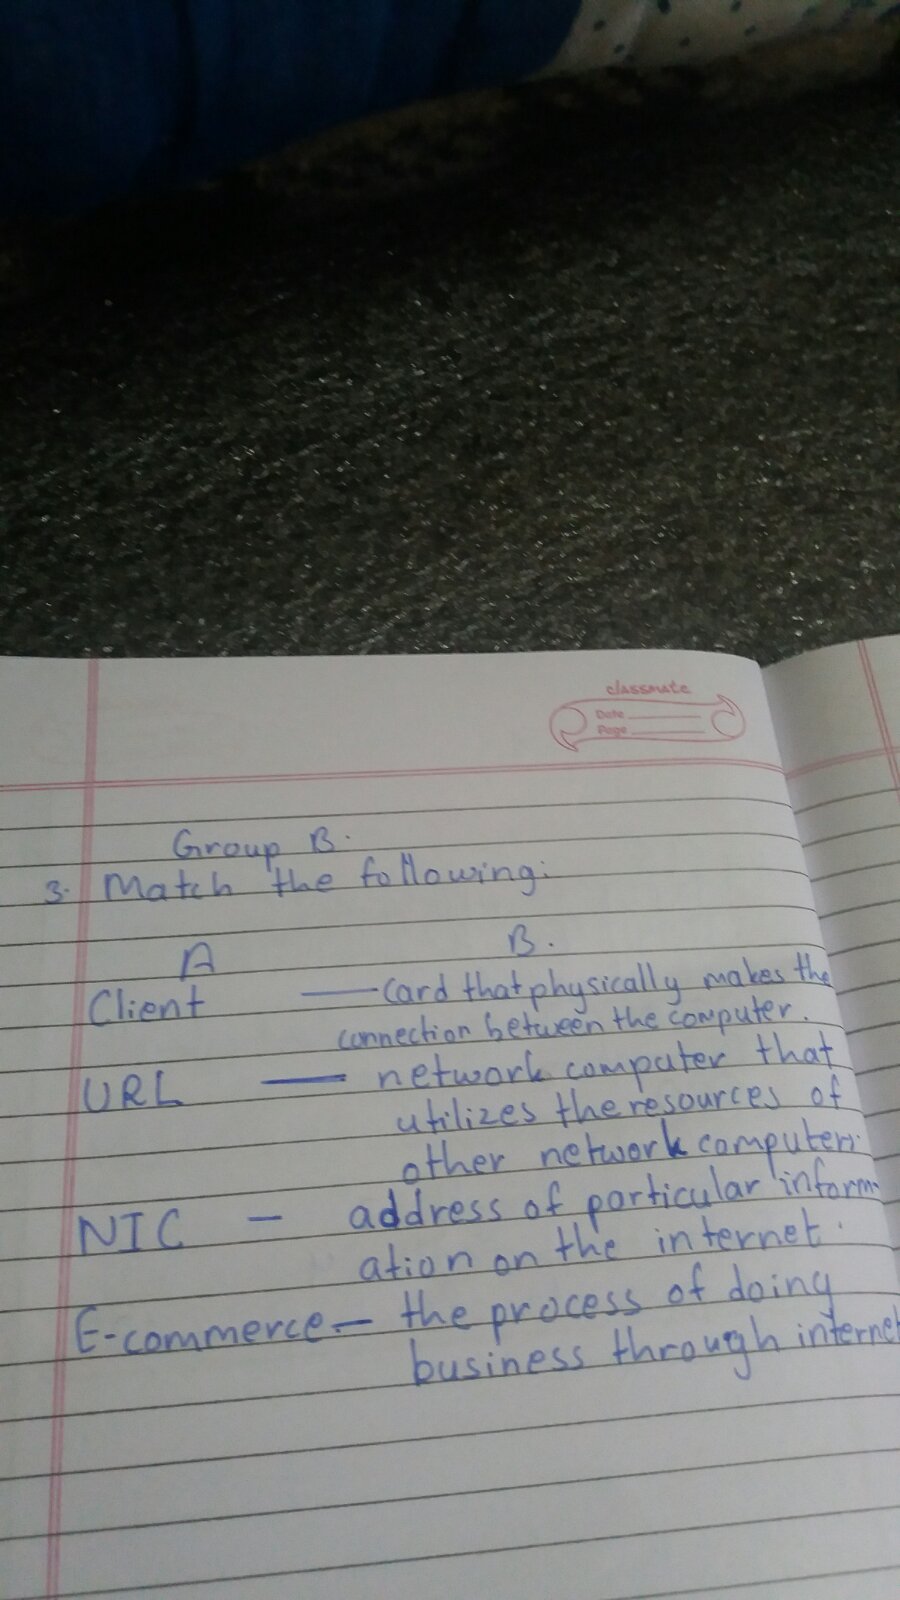 classmate
Date
Page
Group B.
3. Match the following:
A B.
Client — Card that physically makes the
connection between the computer.
URL — network computer that
utilizes the resources of
other network computer.
NIC — address of particular inform-
ation on the internet.
E-commerce — the process of doing
business through internet